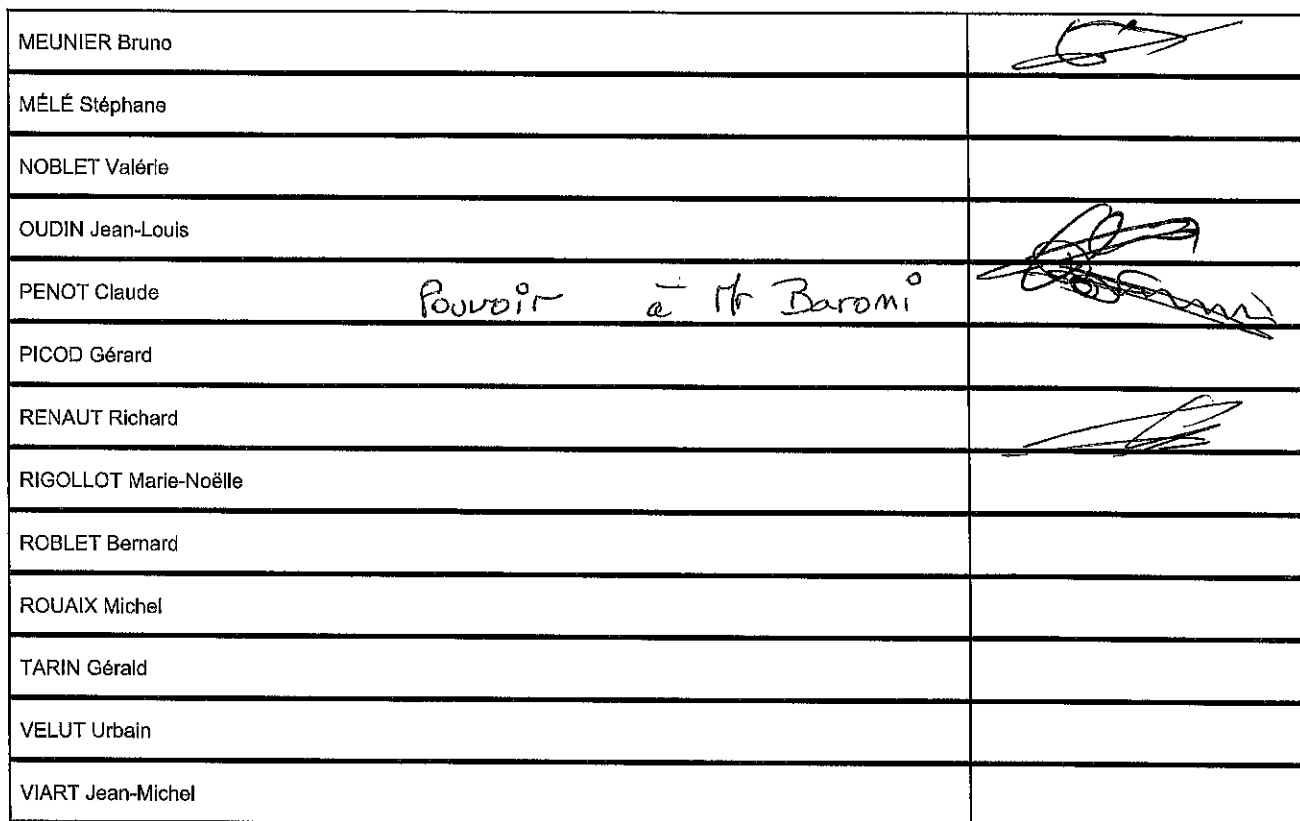 MEUNIER Bruno
MÉLÉ Stéphane
NOBLET Valérie
OUDIN Jean-Louis
PENOT Claude Pouvoir à Mr Baroni
PICOD Gérard
RENAUT Richard
RIGOLLOT Marie-Noëlle
ROBLET Bernard
ROUAIX Michel
TARIN Gérald
VELUT Urbain
VIART Jean-Michel